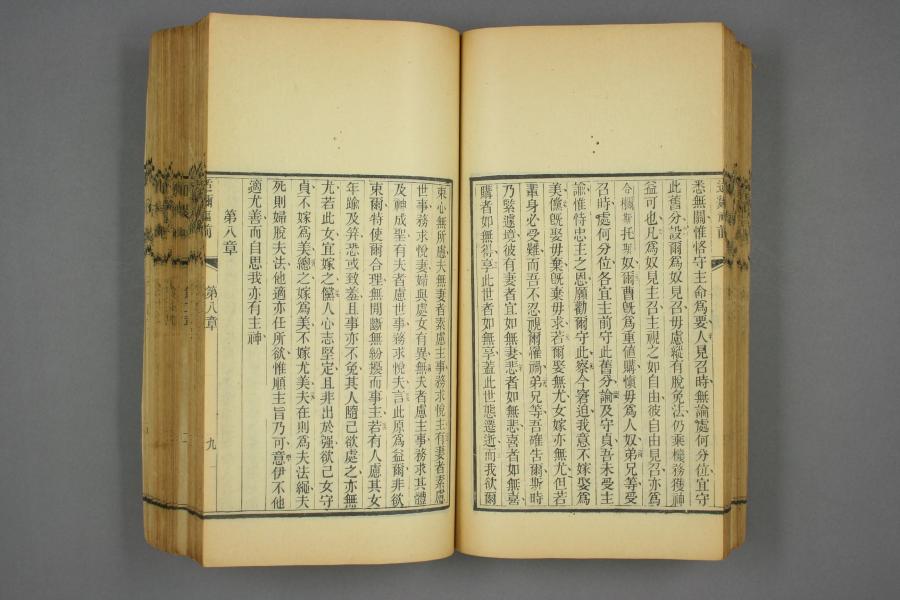 悉無關惟恪守主命爲要人見召時無論處何分位宜守
此舊分設爾爲奴見召毋慮縱有脫免法仍乘機務獲神
益可也凡爲奴見主召主視之如自由彼自由見召亦爲
合楄斯托聖奴爾曹旣爲重値購愼毋爲人奴弟兄等受
召時處何分位各宜主前守此舊分論及守貞吾未受主
諭惟特忠主之恩願勸爾守此察今窘迫我意不嫁娶爲
美儻旣娶毋棄旣棄毋求若爾娶無尤女嫁亦無尤但若
輩身必受難而吾不忍視爾罹禍弟兄等吾確吿爾斯時
乃緊遽境彼有妻者宜如無妻悲者如無悲喜者如無喜
購者如無得享此世者如無享蓋此世態遷逝而我欲爾
東心無所慮夫無妻者素慮主事務求悅主有妻者素慮
世事務求悅妻婦與處女有異無夫者慮主事務求其體
及神成聖有夫者慮世事務求悅夫言此原爲益爾非欲
束爾特使爾合理無間斷無紛擾而事主若有人慮其女
年踰及笄恐或致羞且事亦不免其人隨己欲處之亦無
尤若此女宜嫁之儻人心志堅定且非出於强欲己女守
貞不嫁爲美總之嫁爲美不嫁尤美夫在則爲夫法繩夫
死則婦脫夫法他適亦任所欲惟順主旨乃可意伊不他
適尤善而自思我亦有主神
第八章
第八章
九